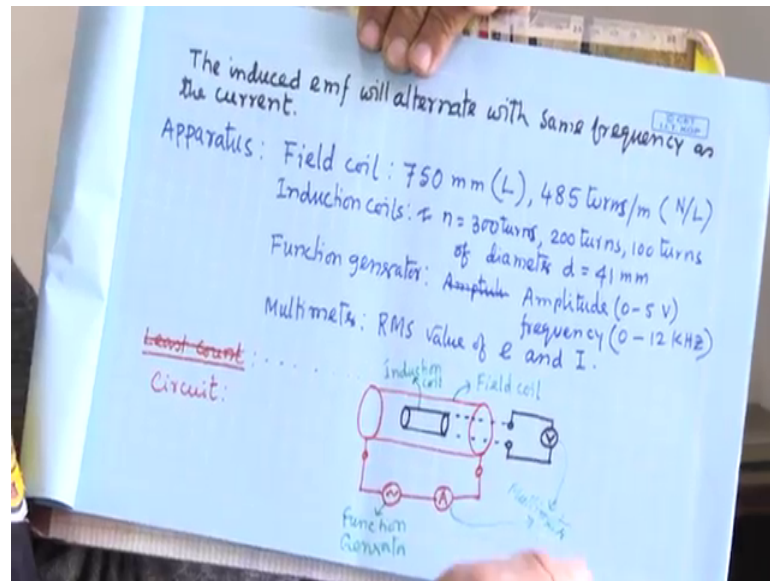 The induced emf will alternate with same frequency as
the current.
© CET
I.I.T. KGP
Apparatus : Field coil : 750 mm (L), 485 turns/m (N/L)
Induction coils : n = 300 turns, 200 turns, 100 turns
of diameter d = 41 mm
Function generator : Amplitude (0-5 V)
frequency (0-12 KHZ)
Multimeter : RMS value of e and I.
Least Count : . . . . . . .
Circuit :
Induction
coil
Field coil
V
A
Function
Generator